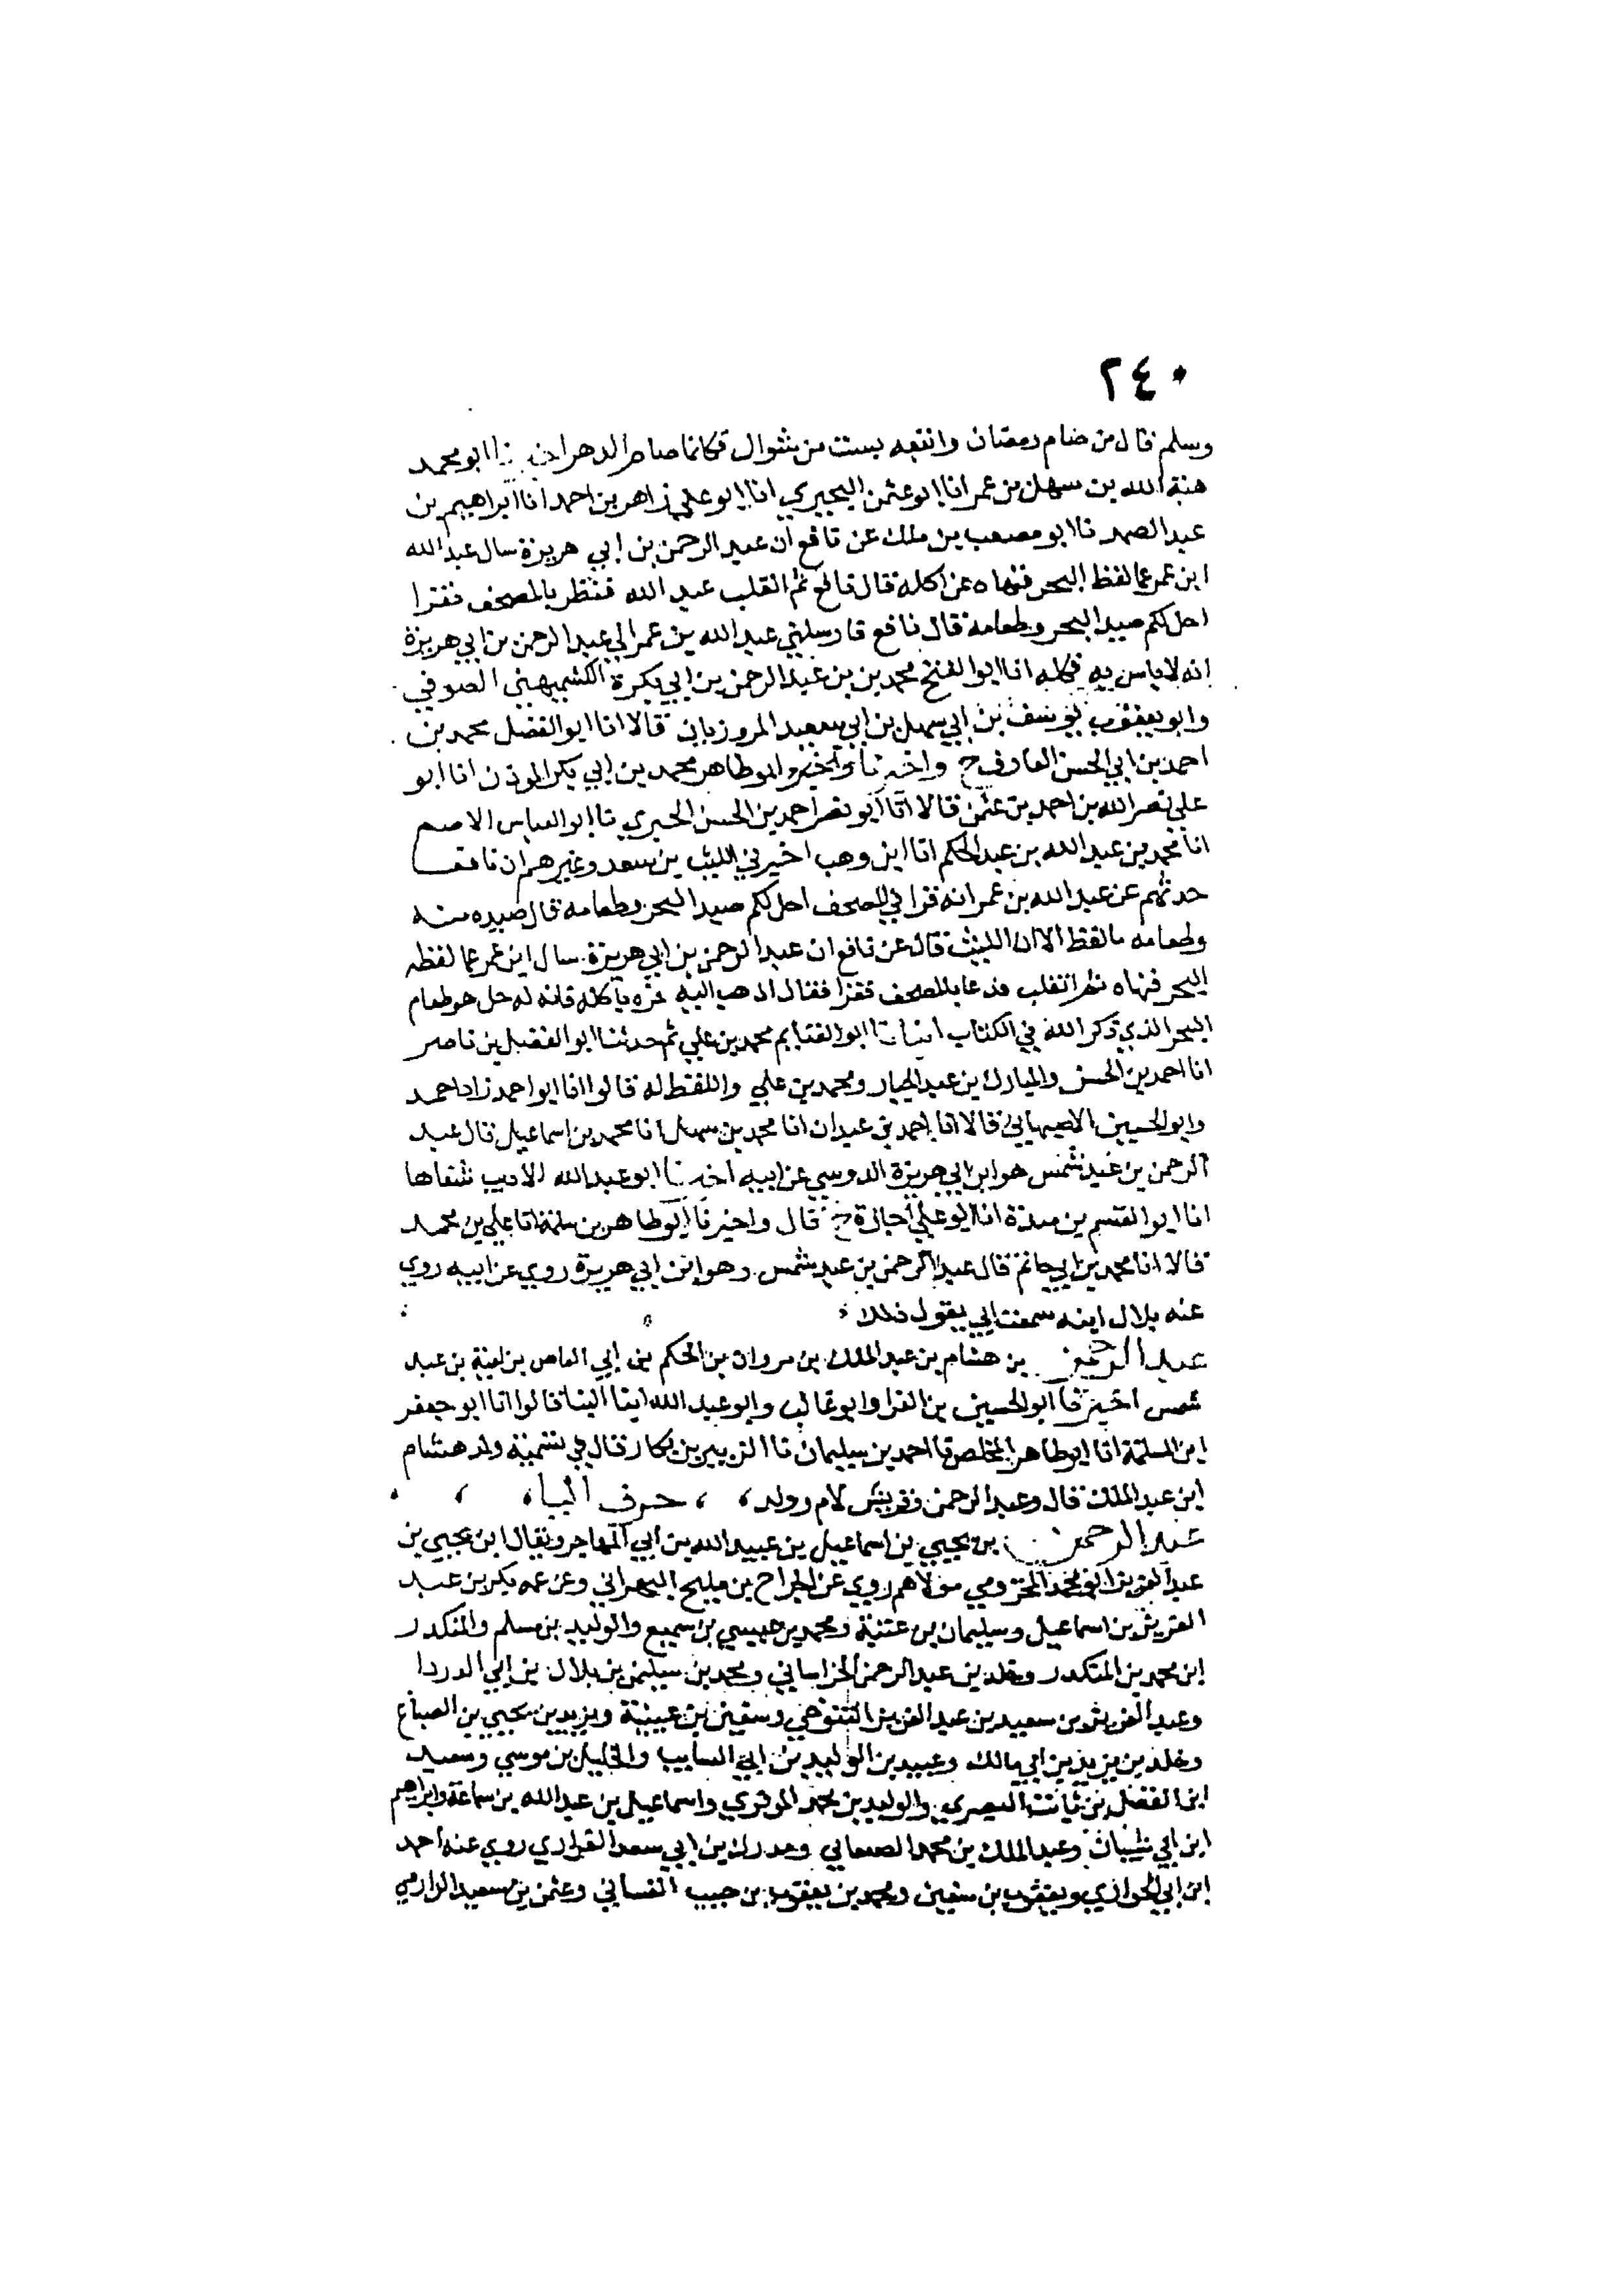 ٢٤٠
وسلم قال من صام رمضان واتبعه بست من شوال فكانما صام الدهر اخبرنا ابو محمد
هبة الله بن سهل بن عمر انا ابو عثمن البحيري انا ابو علي زاهر بن احمد انا ابراهيم بن
عبد الصمد نا ابو مصعب بن ملك عن نافع ان عبد الرحمن بن ابي هريرة سال عبد الله
ابن عمر عما لفظ البحر فنهاه عن اكله قال نافع ثم انقلب عبد الله فنظر بالمصحف فقرا
احل لكم صيد البحر وطعامه قال نافع فارسلني عبد الله بن عمر الي عبد الرحمن بن ابي هريرة
انه لا باس به فكله انا ابو الفتح محمد بن بن عبد الرحمن بن ابي بكرة الكشميهني الصوفي
وابو يعقوب يوسف بن ابي سهل بن ابي سعيد المروزيان قالا انا ابو الفضل محمد بن
احمد بن ابي الحسن العارف ح واخبرنا ابو طاهر محمد بن ابي بكر الموذن انا ابو
علي نصر الله بن احمد بن عثمن قالا انا ابو نصر احمد بن الحسن الحيري نا ابو العباس الاصم
انا محمد بن عبد الله بن عبد الحكم انا ابن وهب اخبرني الليث بن سعد وغيرهم ان نافعا
حدثهم عن عبد الله بن عمر انه قرا في المصحف احل لكم صيد البحر وطعامه قال صيده منه
وطعامه ما لفظ الا ان الليث قال عن نافع ان عبد الرحمن بن ابي هريرة سال ابن عمر عما لفظه
البحر فنهاه ثم انقلب فدعا بالمصحف فقرا فقال اذهب اليه فمره ياكله فانه له حل هو طعام
البحر الذي ذكر الله في الكتاب انبانا ابو الغنايم محمد بن علي ثم حدثنا ابو الفضل بن ناصر
انا احمد بن الحسن والمبارك بن عبد الجبار ومحمد بن علي واللفظ له قالوا انا ابو احمد زاد احمد
وابو الحسين الاصبهاني قالا انا احمد بن عبدان انا محمد بن سهل انا محمد بن اسماعيل قال عبد
الرحمن بن عبد شمس هو ابن ابي هريرة الدوسي عن ابيه اخبرنا ابو عبد الله الاديب شفاها
انا ابو القسم بن مندة انا ابو علي اجازة ح قال واخبرنا ابو طاهر بن سلمة انا علي بن محمد
قالا انا محمد بن ابي حاتم قال عبد الرحمن بن عبد شمس وهو ابن ابي هريرة روي عن ابيه روي
عنه بلال ابنه سمعت ابي يقول ذلك
عبد الرحمن بن هشام بن عبد الملك بن مروان بن الحكم بن ابي العاص بن امية بن عبد
شمس اخبرنا ابو الحسين بن الفرا وابو غالب وابو عبد الله ابنا البنا قالوا انا ابو جعفر
ابن المسلمة انا ابو طاهر المخلص نا احمد بن سليمان نا الزبير بن بكار قال في تسمية ولد هشام
ابن عبد الملك قال وعبد الرحمن وقريش لام ولد ، ، حرف اليا ،
عبد الرحمن بن يحيي بن اسماعيل بن عبيد الله بن ابي المهاجر ويقال ابن يحيي بن
عبد العزيز ابو محمد المخزومي مولاهم روي عن الجراح بن مليح البهراني وعن عمه بكر بن عبد
العزيز بن اسماعيل وسليمان بن عتبة ومحمد بن عيسي بن سميع والوليد بن مسلم والمنكدر
ابن محمد بن المنكدر وخلد بن عبد الرحمن الخراساني ومحمد بن سليمن بن بلال بن ابي الدردا
وعبد العزيز بن سعيد بن عبد العزيز التنوخي وسفين بن عيينة ويزيد بن يحيي بن الصباغ
وخلد بن يزيد بن ابي مالك وعبيد بن الوليد بن ابي السايب والخليل بن موسي وسعيد
ابن الفضل بن ثابت البصري والوليد بن محمد الموقري واسماعيل بن عبد الله بن سماعة وابراهيم
ابن ابي شيبان وعبد الملك بن محمد الصنعاني ومدرك بن ابي سعد الفزاري روي عنه احمد
ابن ابي الحواري ويعقوب بن سفين ومحمد بن يعقوب بن حبيب الغساني وعثمن بن سعيد الدارمي